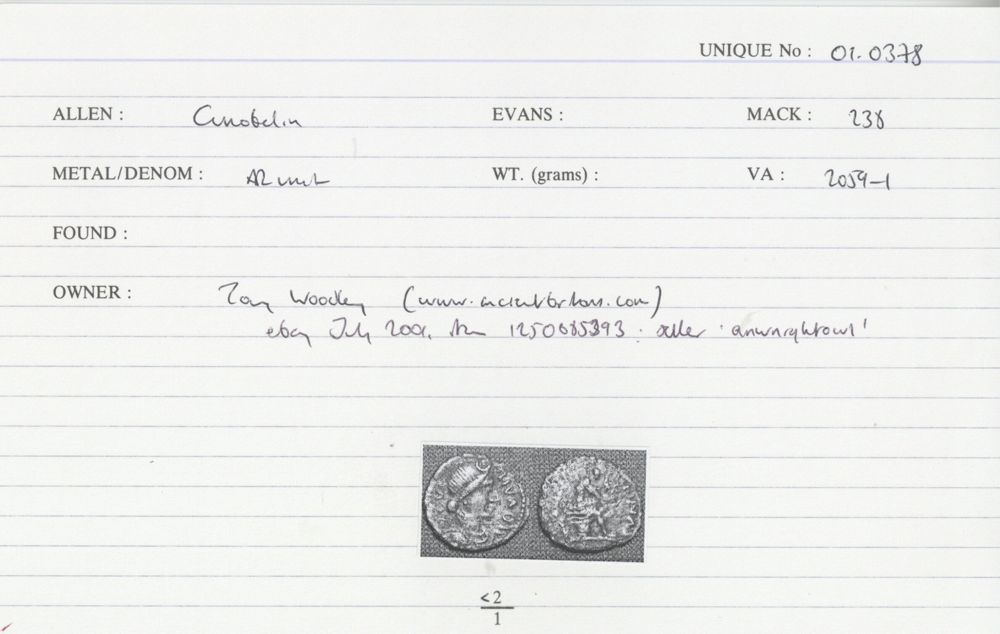 UNIQUE No : 01.0378
ALLEN : Cunobelin EVANS : MACK : 238
METAL/DENOM : AR unit WT. (grams) : VA : 2059-1
FOUND :
OWNER : Tony Woodley (www.ancientbritons.com)
ebay July 2001. Item 1250685393 : seller 'anwrightowl'
<2
1